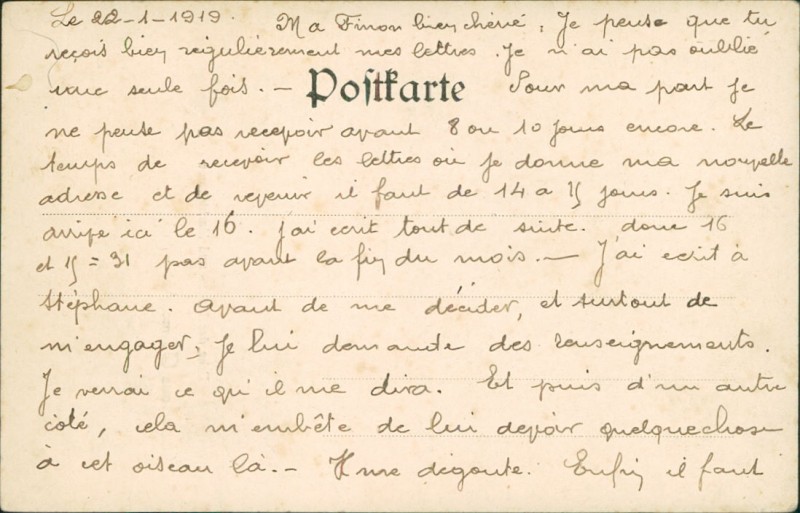 Le 22-1-1919. Ma Finon bien chérié, Je pense que tu
reçois bien régulièrement mes lettres. Je n'ai pas oublié
une seule fois. — Postkarte Pour ma part je
ne pense pas recevoir avant 8 ou 10 jours encore. Le
temps de recevoir les lettres où je donne ma nouvelle
adresse et de revenir il faut de 14 a 15 jours. Je suis
arrivé ici le 16. j'ai ecrit tout de suite. donc 16
et 15 = 31 pas avant la fin du mois. — J'ai ecrit à
Stéphane. avant de me décider, et surtout de
m'engager, je lui demande des renseignements.
Je verrai ce qu'il me dira. Et puis d'un autre
coté, cela m'embête de lui devoir quelquechose
à cet oiseau là. — Il me dégoute. Enfin il faut